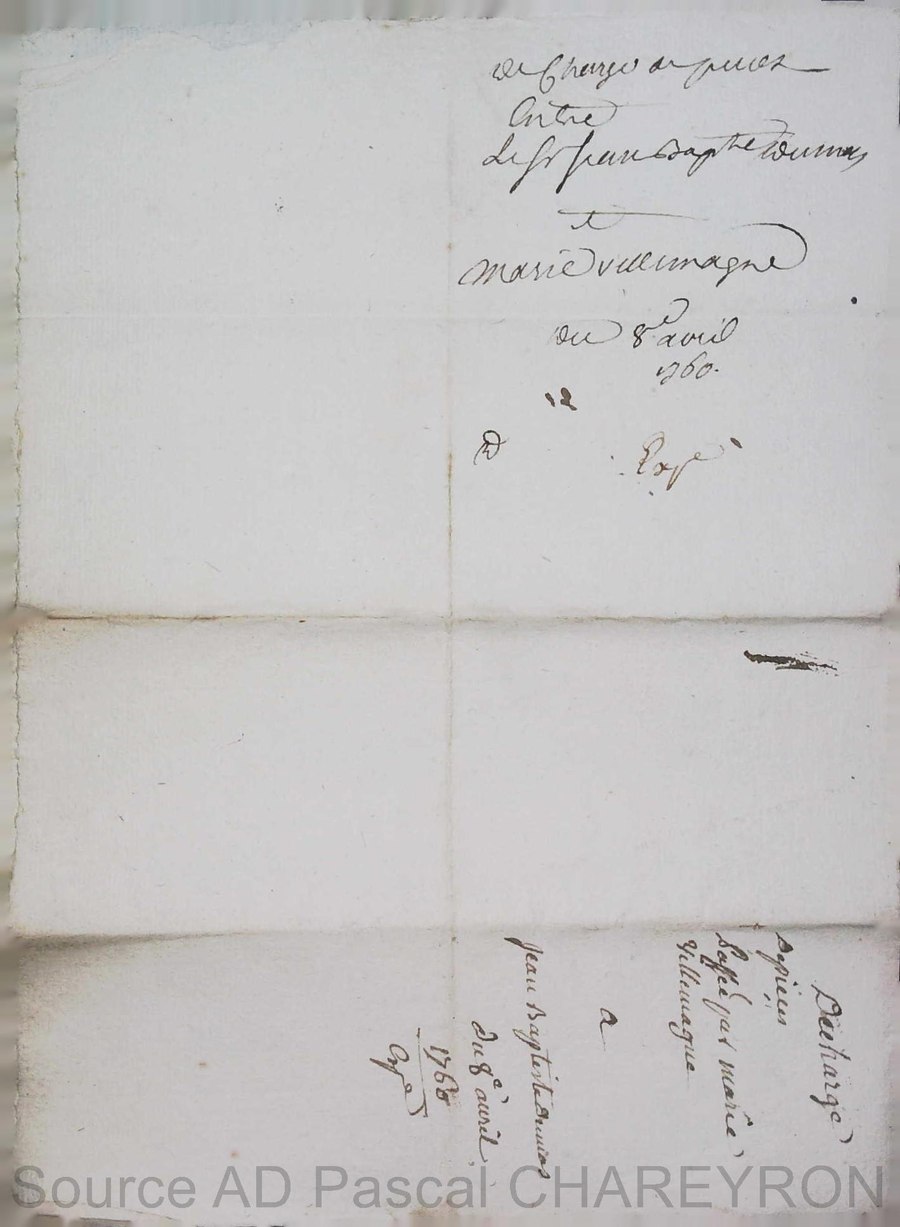 de Charge de pieces
Entre
Le Sr Jean Bapte Dumas
et
marie villemagne
du 8e avril
1760.
Expé
Decharge
De pieces
passé par marie
Villemagne
a
Jean Baptiste Dumas
Du 8e avril
1760
Expé
Source AD Pascal CHAREYRON